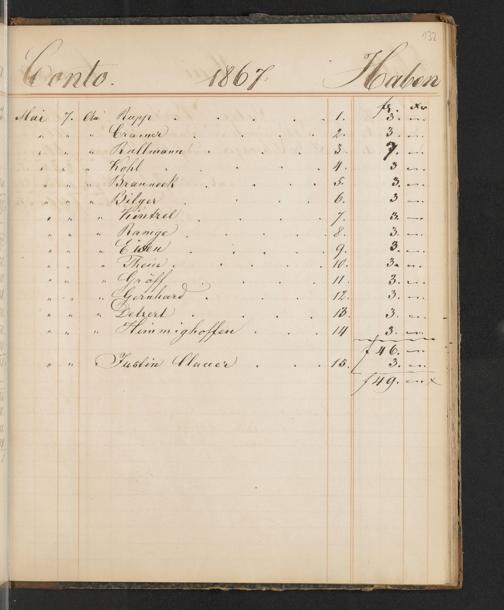 132
Conto. 1867. Haben
fl. xr
Mai 7. An Rapp . . . . 1. 3. —
" " " Cramer . . . . 2. 3. —
" " " Rullmann . . . 3. 7. —
" " " Kohl . . . . 4. 3 —
" " " Branneck . . . . 5. 3. —
" " " Bilger . . . . 6. 3 —
" " " Kintzel . . . . 7. 3. —
" " " Ramge . . . . 8. 3. —
" " " . . . . 9. 3. —
" " " Theis . . . . 10. 3. —
" " " Gräff . . . . 11. 3. —
" " " Gernhard . . . . 12. 3. —
" " " Detzert . . . . 13. 3. —
" " " Himmighoffen . . . 14 3. —
f 46. —
" " Justin . . . 15. 3. —
f 49. — x